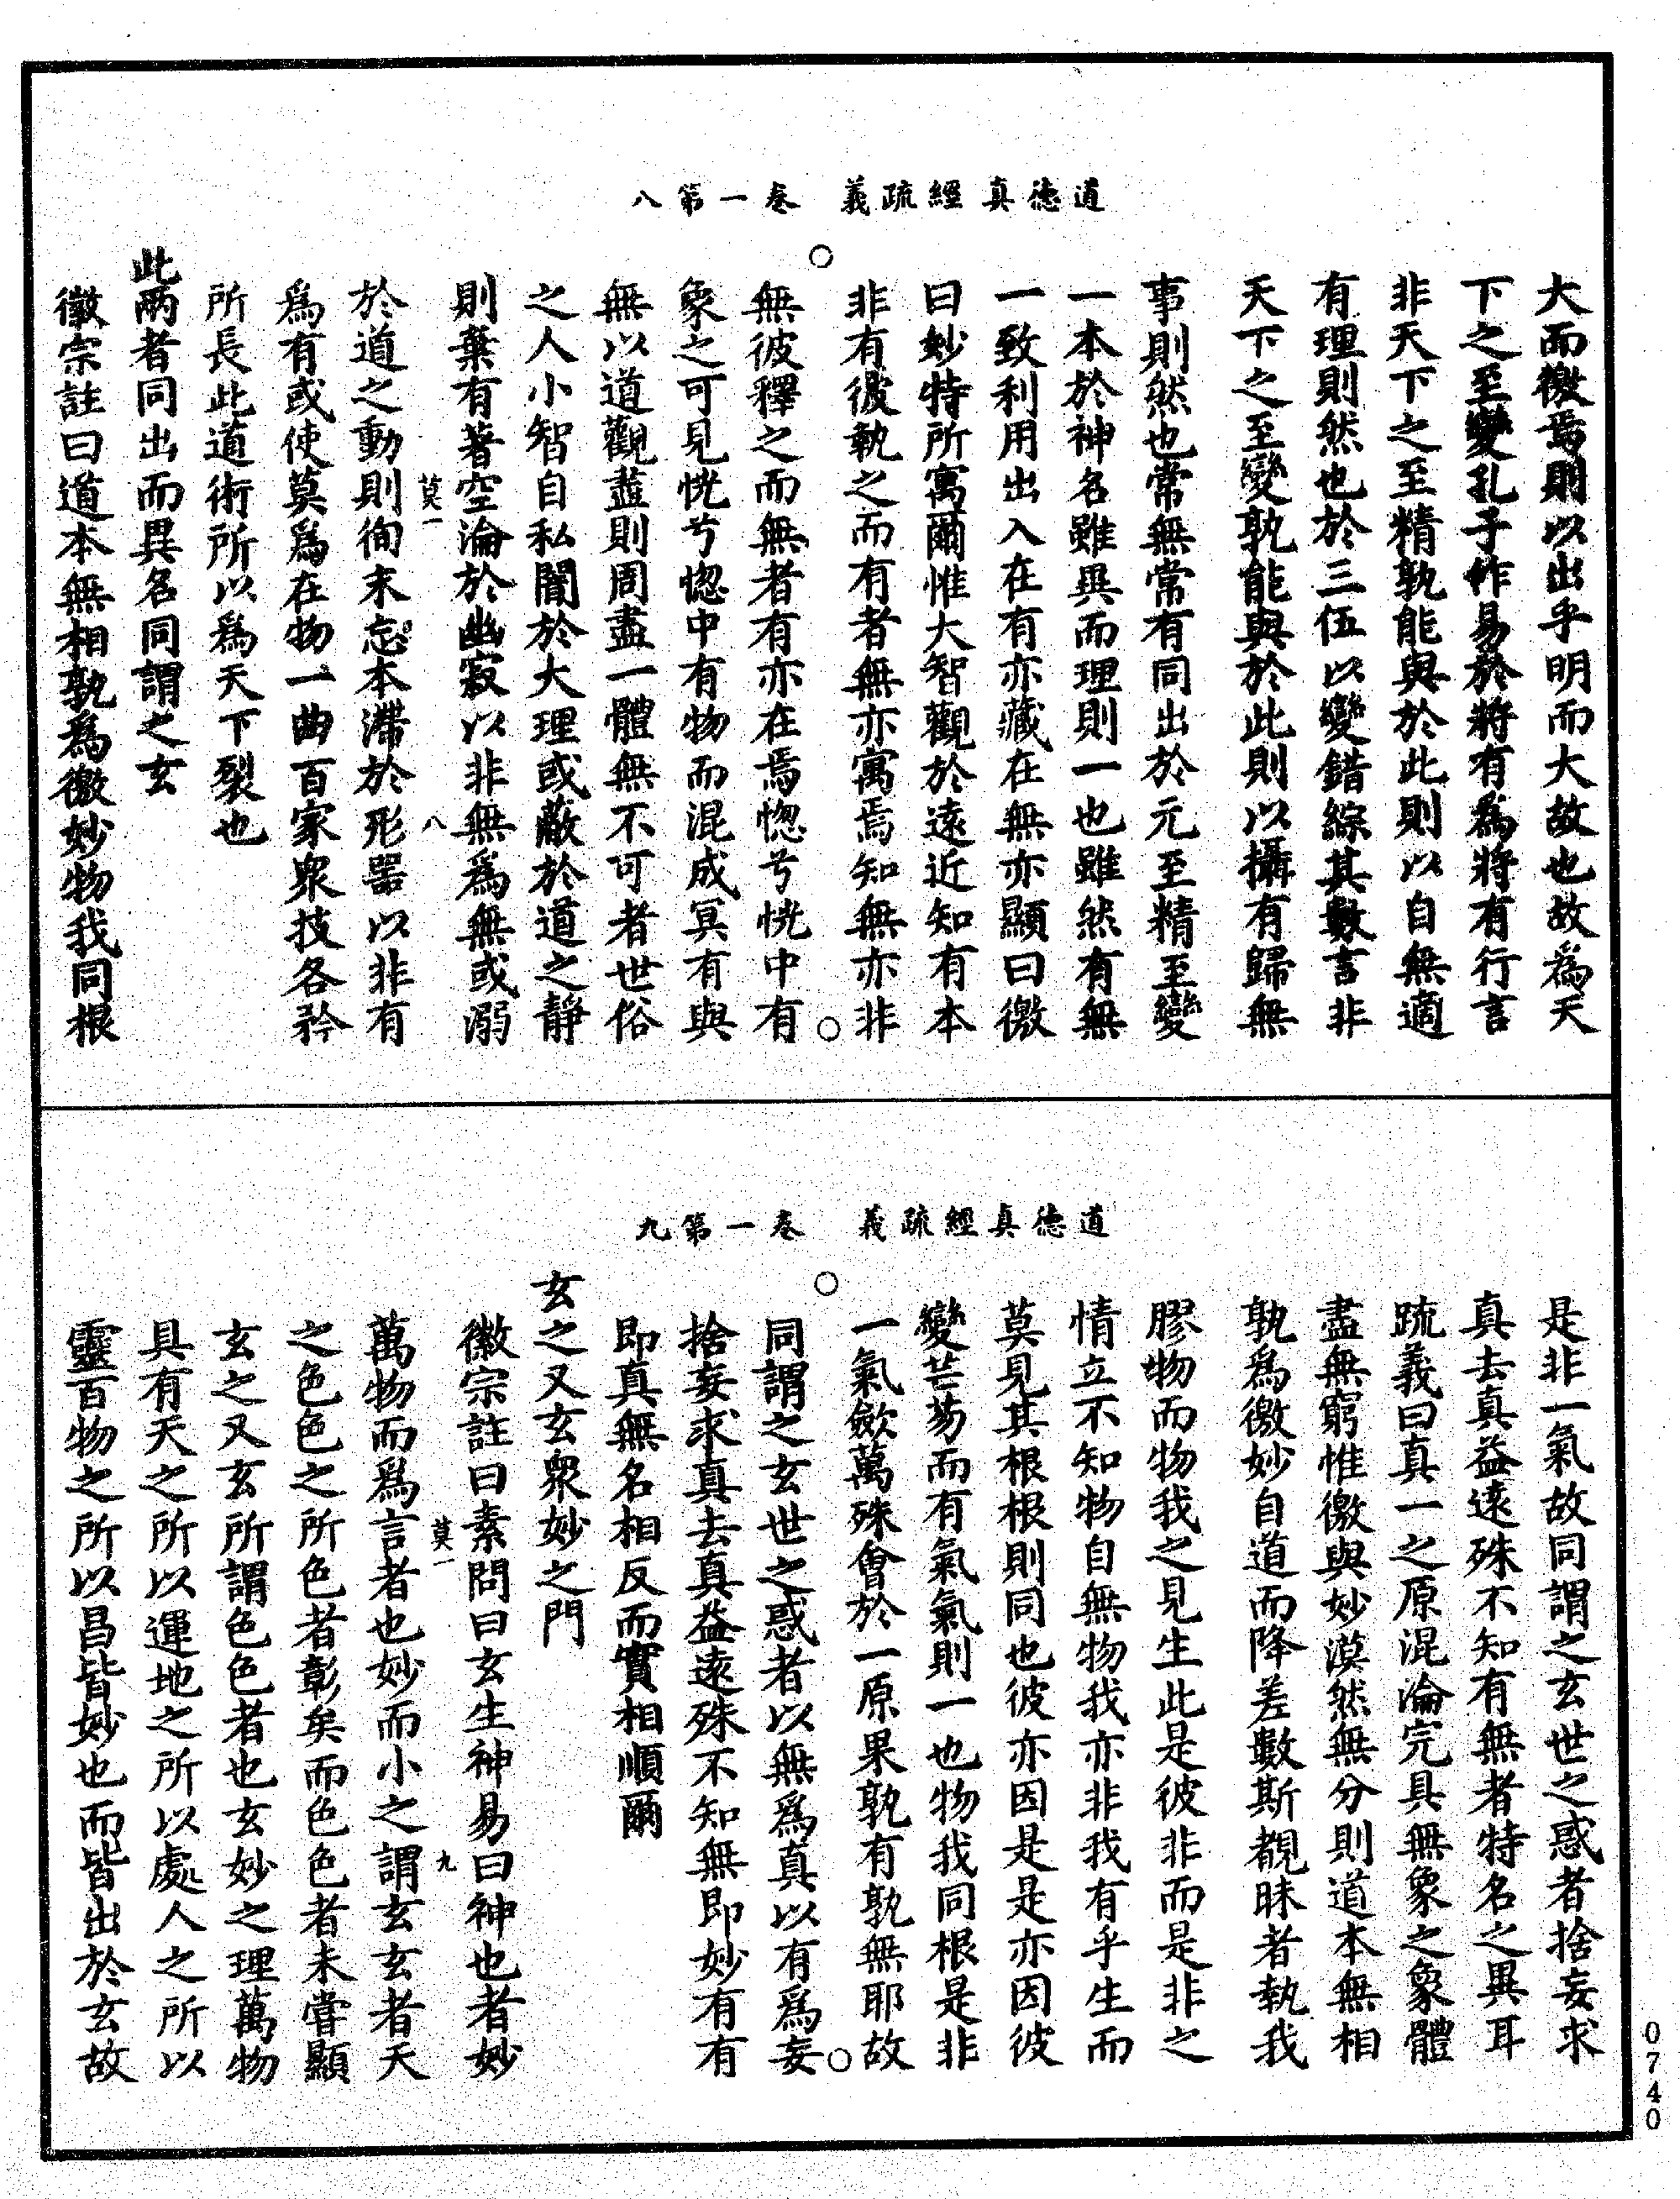 道德真經疏義　卷一第八
大而徼焉則以出乎明而大故也故爲天
下之至變孔子作易於將有爲將有行言
非天下之至精孰能與於此則以自無適
有理則然也於三伍以變錯綜其數言非
天下之至變孰能與於此則以攝有歸無
事則然也常無常有同出於元至精至變
一本於神名雖異而理則一也雖然有無
一致利用出入在有亦藏在無亦顯曰徼
曰妙特所寓爾惟大智觀於遠近知有本
非有彼執之而有者無亦寓焉知無亦非
無彼釋之而無者有亦在焉惚兮恍中有
象之可見恍兮惚中有物而混成冥有與
無以道觀盡則周盡一體無不可者世俗
之人小智自私闇於大理或蔽於道之靜
則棄有著空淪於幽寂以非無爲無或溺
莫一　八
於道之動則徇末忘本滯於形器以非有
爲有或使莫爲在物一曲百家衆技各矜
所長此道術所以爲天下裂也
此兩者同出而異名同謂之玄
徽宗註曰道本無相孰爲徼妙物我同根
道德真經疏義　卷一第九
是非一氣故同謂之玄世之惑者捨妄求
真去真益遠殊不知有無者特名之異耳
疏義曰真一之原混淪完具無象之象體
盡無窮惟徼與妙漠然無分則道本無相
孰爲徼妙自道而降差數斯覩昧者執我
膠物而物我之見生此是彼非而是非之
情立不知物自無物我亦非我有乎生而
莫見其根根則同也彼亦因是是亦因彼
變芒芴而有氣氣則一也物我同根是非
一氣斂萬殊會於一原果孰有孰無耶故
同謂之玄世之惑者以無爲真以有爲妄
捨妄求真去真益遠殊不知無即妙有有
即真無名相反而實相順爾
玄之又玄衆妙之門
徽宗註曰素問曰玄生神易曰神也者妙
莫一　九
萬物而爲言者也妙而小之謂玄玄者天
之色色之所色者彰矣而色色者未嘗顯
玄之又玄所謂色色者也玄妙之理萬物
具有天之所以運地之所以處人之所以
靈百物之所以昌皆妙也而皆出於玄故
0740